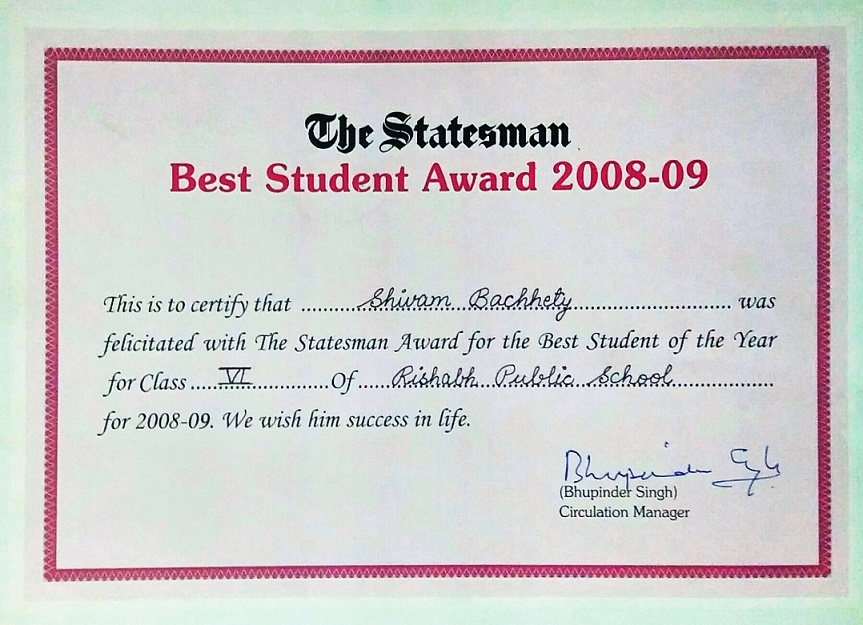 The Statesman
Best Student Award 2008-09
This is to certify that ............Shivam Bachhety.............................. was
felicitated with The Statesman Award for the Best Student of the Year
for Class .....VI..............Of......Rishabh Public School...................
for 2008-09. We wish him success in life.
Bhupinder Singh
(Bhupinder Singh)
Circulation Manager